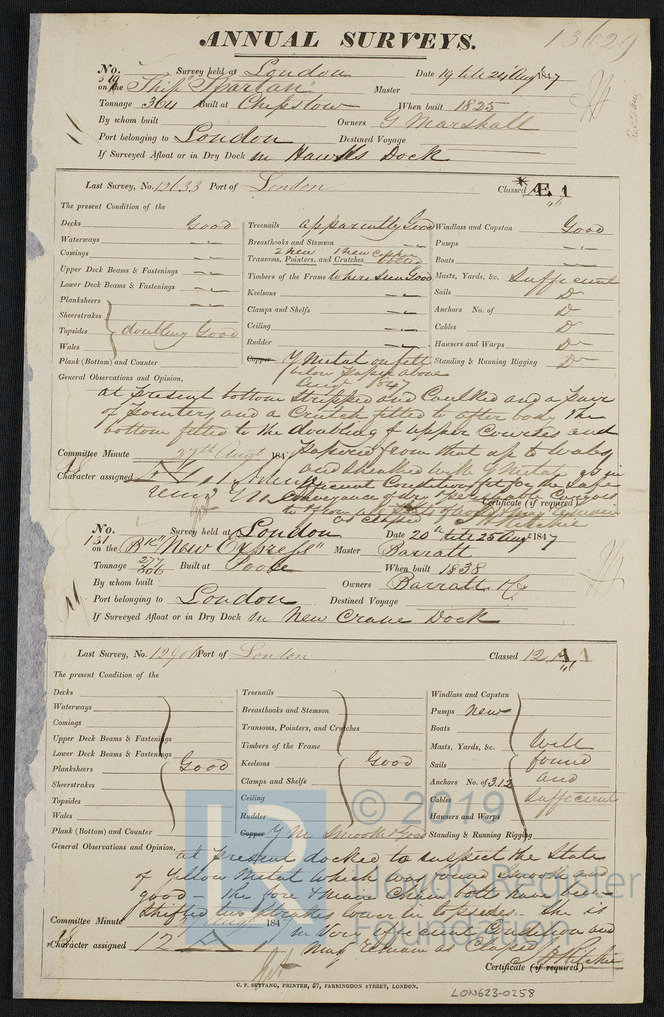 ANNUAL SURVEYS.
13629
No. Survey held at London Date 19 till 24 Augt 1847
on the Ship "Spartan" Master
Tonnage 364 Built at Chepstow When built 1825
By whom built Owners G Marshall
Port belonging to London Destined Voyage
If Surveyed Afloat or in Dry Dock in Hawks Dock
Last Survey, No. 12633 Port of London Classed * Æ 1
The present Condition of the
Decks Good
Waterways
Comings
Upper Deck Beams & Fastenings
Lower Deck Beams & Fastenings
Planksheers
Sheerstrakes
Topsides doubling Good
Wales
Plank (Bottom) and Counter
Treenails apparently Good
Breasthooks and Stemson
2 New
Transoms, Pointers, and Crutches fitted
Timbers of the Frame where seen Good
Keelsons
Clamps and Shelfs
Ceiling
Rudder
Copper Y Metal on felt
below paper above
Augt 1847
Windlass and Capstan Good
Pumps
Boats
Masts, Yards, &c. Sufficient
Sails Do
Anchors No. of Do
Cables Do
Hawsers and Warps Do
Standing & Running Rigging Do
General Observations and Opinion,
at Present bottom Stripped and Caulked and a pair
of Pointers and a Crutch fitted to after body the
bottom felted to the doubling & upper courses and
Papered from that up to Wales
Committee Minute 27th Augt 184
and sheathed with Y Metal
Character assigned
Certificate (if required)
J H Ritchie
No. Survey held at London Date 20th till 25 Augt 1847
131 on the Bk "New Express" Master Barratt
Tonnage 277 306 Built at Poole When built 1838
By whom built Owners Barratt & Co
Port belonging to London Destined Voyage
If Surveyed Afloat or in Dry Dock in New Crane Dock
Last Survey, No. 12906 Port of London Classed 12 A 1
The present Condition of the
Decks
Waterways
Comings
Upper Deck Beams & Fastenings
Lower Deck Beams & Fastenings
Planksheers Good
Sheerstrakes
Topsides
Wales
Plank (Bottom) and Counter
Treenails
Breasthooks and Stemson
Transoms, Pointers, and Crutches
Timbers of the Frame
Keelsons Good
Clamps and Shelfs
Ceiling
Rudder
Copper Y M Smooth & Good
Windlass and Capstan
Pumps New
Boats
Masts, Yards, &c. Well
Sails found
Anchors No. of 3.12 and
Cables Sufficient
Hawsers and Warps
Standing & Running Rigging
General Observations and Opinion,
at Present docked to inspect the State
of Yellow Metal which was found smooth and
good - the fore & main Chain bolts have been
shifted two strakes lower in topsides. She is
Committee Minute 184
in Very efficient Condition and
Character assigned 12 A 1
may remain as Classed
J H Ritchie
Certificate (if required)
C. F. SEYFANG, PRINTER, 57, FARRINGDON STREET, LONDON.
LON623-0258
© 2019
Lloyd's Register
Foundation